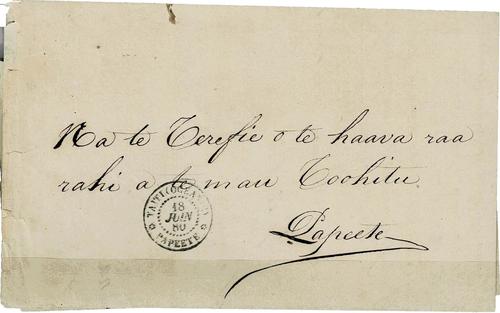 Na te Terefie o te haava raa
rahi a te mau Toohitu.
Papeete
TAITI (OCEANIE)
18
JUIN
80
PAPEETE